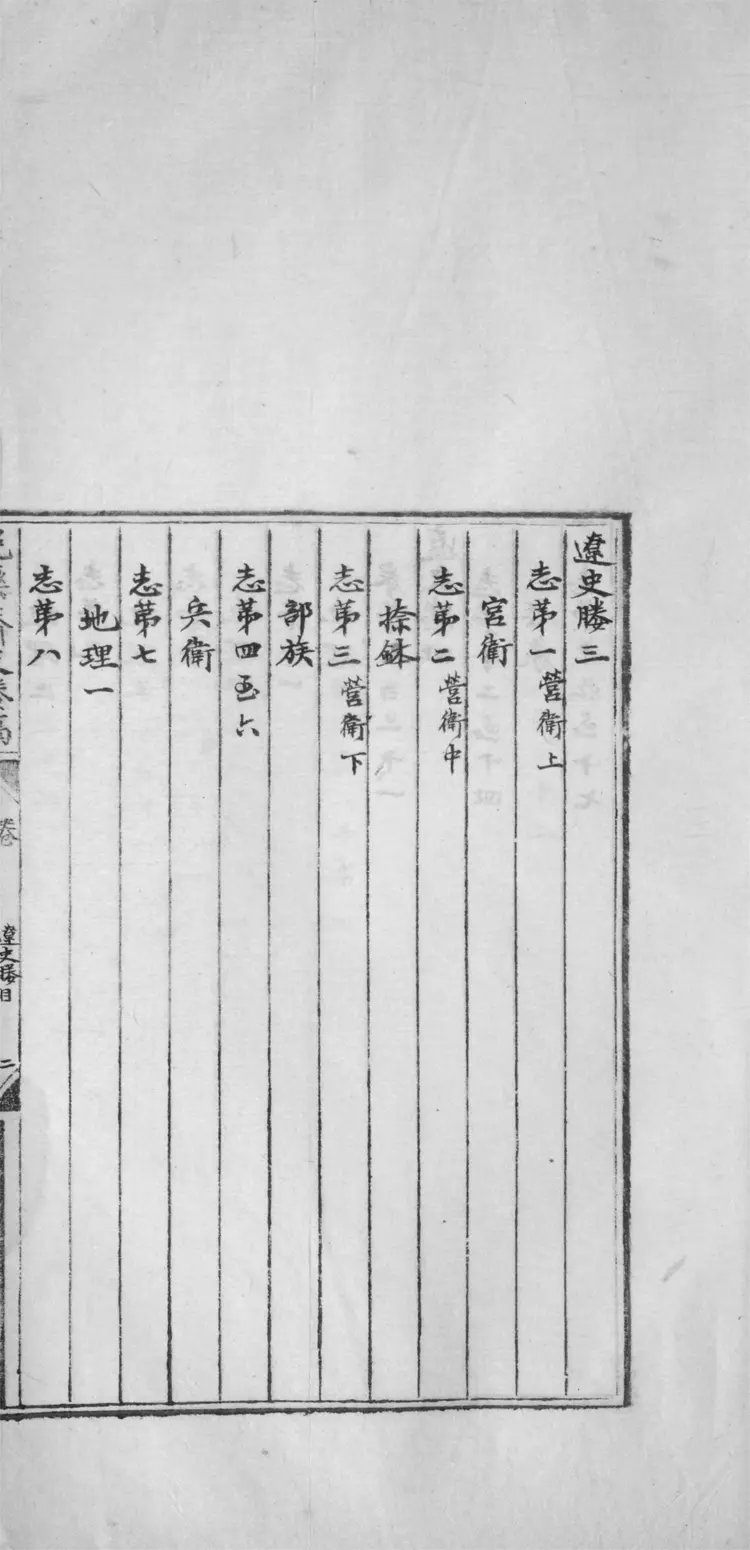 遼史勝三
志第一營衛上
宮衛
志第二營衛中
捺鉢
志第三營衛下
部族
志第四至六
兵衛
志第七
地理一
志第八
卷
遼史勝目
二